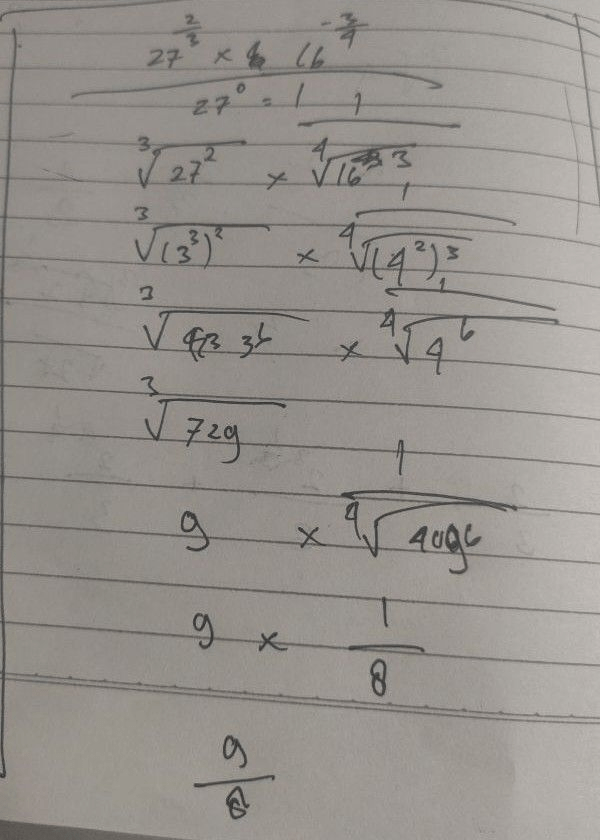 27^{2/3} × 16^{-3/4}
27^0 = 1
∛(27^2) × 1/∜(16^3)
∛((3^3)^2) × 1/∜((4^2)^3)
∛(3^6) × 1/∜(4^6)
∛729
9 × 1/∜4096
9 × 1/8
9/8